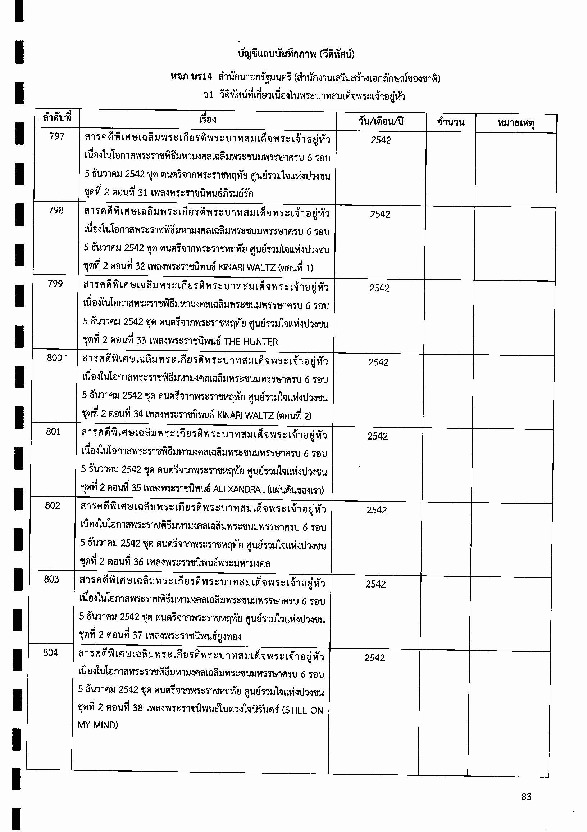 บัญชีแถบบันทึกภาพ (วีดิทัศน์)
หจภ นร14 สำนักนายกรัฐมนตรี (สำนักงานเสริมสร้างเอกลักษณ์ของชาติ)
ว1 วีดิทัศน์ที่เกี่ยวเนื่องในพระบาทสมเด็จพระเจ้าอยู่หัว
ลำดับที่ เรื่อง วัน/เดือน/ปี จำนวน หมายเหตุ
797 สารคดีพิเศษเฉลิมพระเกียรติพระบาทสมเด็จพระเจ้าอยู่หัว 2542
เนื่องในโอกาสพระราชพิธีมหามงคลเฉลิมพระชนมพรรษาครบ 6 รอบ
5 ธันวาคม 2542 ชุด ดนตรีจากพระราชหฤทัย ศูนย์รวมใจแห่งปวงชน
ชุดที่ 2 ตอนที่ 31 เพลงพระราชนิพนธ์ภิรมย์รัก
798 สารคดีพิเศษเฉลิมพระเกียรติพระบาทสมเด็จพระเจ้าอยู่หัว 2542
เนื่องในโอกาสพระราชพิธีมหามงคลเฉลิมพระชนมพรรษาครบ 6 รอบ
5 ธันวาคม 2542 ชุด ดนตรีจากพระราชหฤทัย ศูนย์รวมใจแห่งปวงชน
ชุดที่ 2 ตอนที่ 32 เพลงพระราชนิพนธ์ KINARI WALTZ (ตอนที่ 1)
799 สารคดีพิเศษเฉลิมพระเกียรติพระบาทสมเด็จพระเจ้าอยู่หัว 2542
เนื่องในโอกาสพระราชพิธีมหามงคลเฉลิมพระชนมพรรษาครบ 6 รอบ
5 ธันวาคม 2542 ชุด ดนตรีจากพระราชหฤทัย ศูนย์รวมใจแห่งปวงชน
ชุดที่ 2 ตอนที่ 33 เพลงพระราชนิพนธ์ THE HUNTER
800 สารคดีพิเศษเฉลิมพระเกียรติพระบาทสมเด็จพระเจ้าอยู่หัว 2542
เนื่องในโอกาสพระราชพิธีมหามงคลเฉลิมพระชนมพรรษาครบ 6 รอบ
5 ธันวาคม 2542 ชุด ดนตรีจากพระราชหฤทัย ศูนย์รวมใจแห่งปวงชน
ชุดที่ 2 ตอนที่ 34 เพลงพระราชนิพนธ์ KINARI WALTZ (ตอนที่ 2)
801 สารคดีพิเศษเฉลิมพระเกียรติพระบาทสมเด็จพระเจ้าอยู่หัว 2542
เนื่องในโอกาสพระราชพิธีมหามงคลเฉลิมพระชนมพรรษาครบ 6 รอบ
5 ธันวาคม 2542 ชุด ดนตรีจากพระราชหฤทัย ศูนย์รวมใจแห่งปวงชน
ชุดที่ 2 ตอนที่ 35 เพลงพระราชนิพนธ์ ALEXANDRA (แผ่นดินของเรา)
802 สารคดีพิเศษเฉลิมพระเกียรติพระบาทสมเด็จพระเจ้าอยู่หัว 2542
เนื่องในโอกาสพระราชพิธีมหามงคลเฉลิมพระชนมพรรษาครบ 6 รอบ
5 ธันวาคม 2542 ชุด ดนตรีจากพระราชหฤทัย ศูนย์รวมใจแห่งปวงชน
ชุดที่ 2 ตอนที่ 36 เพลงพระราชนิพนธ์พระมหามงคล
803 สารคดีพิเศษเฉลิมพระเกียรติพระบาทสมเด็จพระเจ้าอยู่หัว 2542
เนื่องในโอกาสพระราชพิธีมหามงคลเฉลิมพระชนมพรรษาครบ 6 รอบ
5 ธันวาคม 2542 ชุด ดนตรีจากพระราชหฤทัย ศูนย์รวมใจแห่งปวงชน
ชุดที่ 2 ตอนที่ 37 เพลงพระราชนิพนธ์ยูงทอง
804 สารคดีพิเศษเฉลิมพระเกียรติพระบาทสมเด็จพระเจ้าอยู่หัว 2542
เนื่องในโอกาสพระราชพิธีมหามงคลเฉลิมพระชนมพรรษาครบ 6 รอบ
5 ธันวาคม 2542 ชุด ดนตรีจากพระราชหฤทัย ศูนย์รวมใจแห่งปวงชน
ชุดที่ 2 ตอนที่ 38 เพลงพระราชนิพนธ์ในดวงใจนิรันดร์ (STILL ON
MY MIND)
83